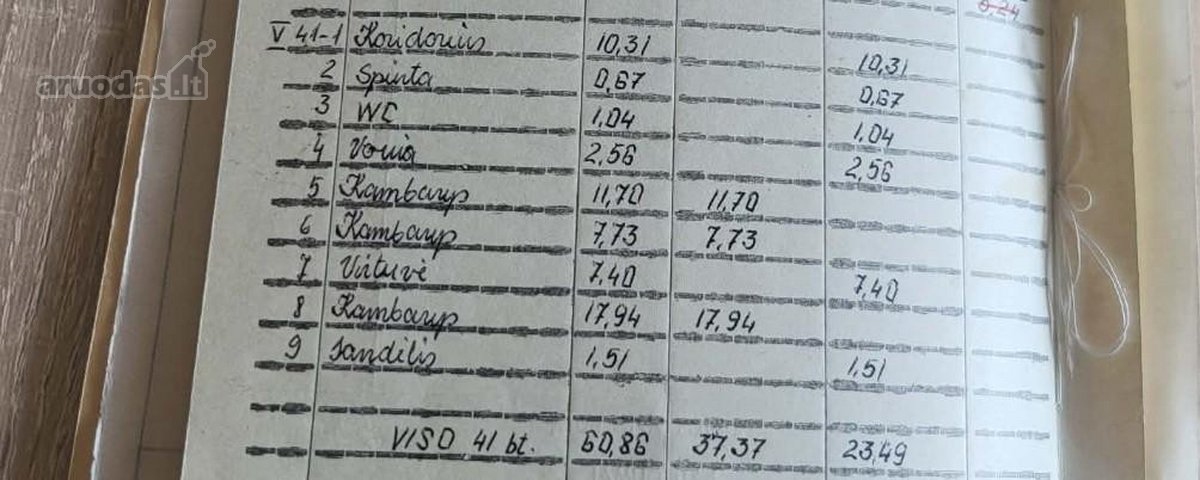 V 41-1 Koridorius 10,31 10,31
2 Spinta 0,67 0,67
3 WC 1,04 1,04
4 Vonia 2,56 2,56
5 Kambarys 11,70 11,70
6 Kambarys 7,73 7,73
7 Virtuvė 7,40 7,40
8 Kambarys 17,94 17,94
9 Sandėlis 1,51 1,51
VISO 41 bt. 60,86 37,37 23,49
aruodas.lt